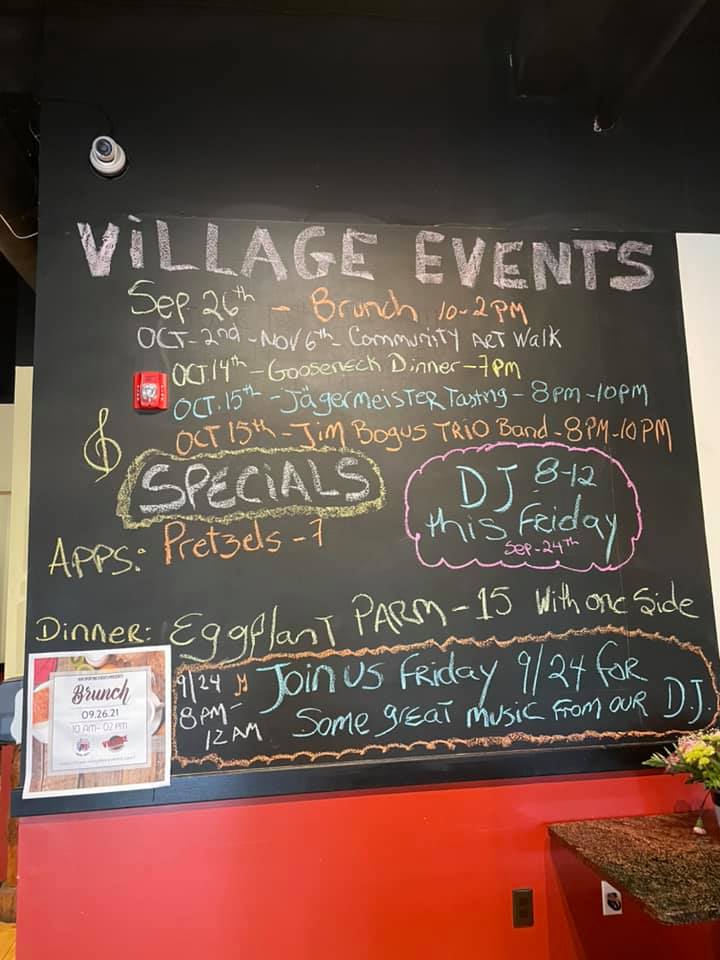 VILLAGE EVENTS
Sep 26th - Brunch 10-2PM
OCT-2nd-Nov 6th- Community Art Walk
OCT 14th-Gooseneck Dinner-7pm
OCT. 15th-Jägermeister Tasting-8pm-10pm
OCT 15th-Jim Bogus TRIO Band-8PM-10PM
SPECIALS
DJ 8-12
this Friday
Sep-24th
APPS: Pretzels-7
Dinner: Eggplant PARM-15 With one Side
9/24
8PM-
12AM
Join us Friday 9/24 for
Some great music from our D.J.
Brunch
09.26.21
10 AM- 02 PM